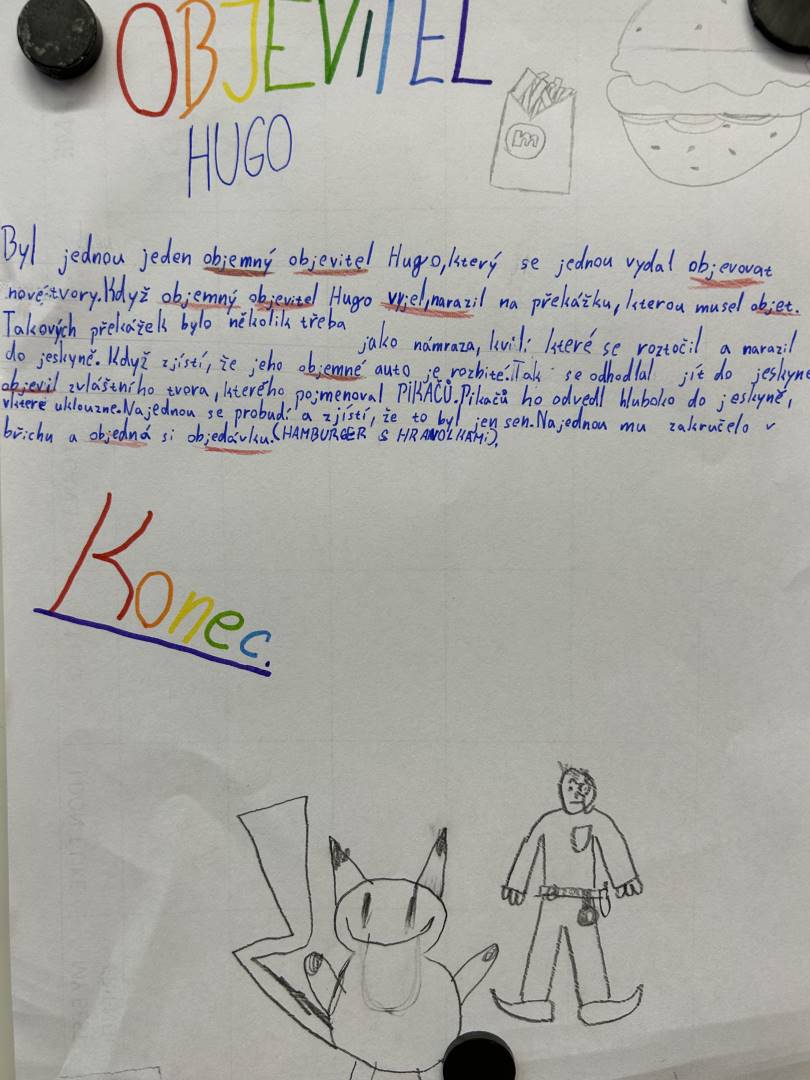 OBJEVITEL
HUGO
m
Byl jednou jeden objemný objevitel Hugo, který se jednou vydal objevovat
nové tvory. Když objemný objevitel Hugo vyjel, narazil na překážku, kterou musel objet.
Takových překážek bylo několik třeba
jako námraza, kvůli které se roztočil a narazil
do jeskyně. Když zjistí, že jeho objemné auto je rozbité. Tak se odhodlal jít do jeskyně
objevil zvláštního tvora, kterého pojmenoval PIKAČŮ. Pikačů ho odvedl hluboko do jeskyně,
v které uklouzne. Najednou se probudí a zjistí, že to byl jen sen. Najednou mu zakručelo v
břichu a objedná si objedávku. (HAMBURGER S HRANOLKAMI).
Konec.